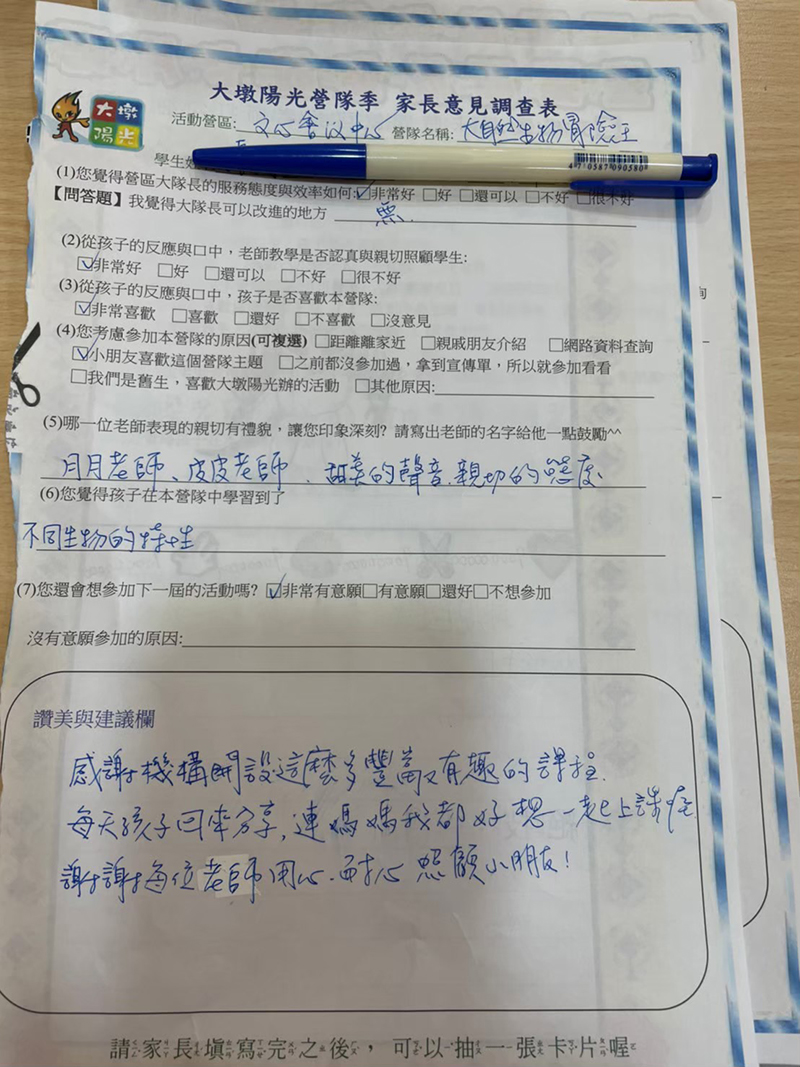 大墩陽光營隊季 家長意見調查表
大墩
陽光
活動營區: 文心會議中心 營隊名稱: 大自然生物冒險王
學生姓
4 710587 090580
(1)您覺得營區大隊長的服務態度與效率如何:☑非常好 □好 □還可以 □不好 □很不好
【問答題】我覺得大隊長可以改進的地方 無.
(2)從孩子的反應與口中，老師教學是否認真與親切照顧學生:
☑非常好 □好 □還可以 □不好 □很不好
(3)從孩子的反應與口中，孩子是否喜歡本營隊:
☑非常喜歡 □喜歡 □還好 □不喜歡 □沒意見
(4)您考慮參加本營隊的原因(可複選) □距離離家近 □親戚朋友介紹 □網路資料查詢
☑小朋友喜歡這個營隊主題 □之前都沒參加過，拿到宣傳單，所以就參加看看
□我們是舊生，喜歡大墩陽光辦的活動 □其他原因:
(5)哪一位老師表現的親切有禮貌，讓您印象深刻? 請寫出老師的名字給他一點鼓勵^^
月月老師、皮皮老師、甜美的聲音、親切的態度.
(6)您覺得孩子在本營隊中學習到了
不同生物的特性
(7)您還會想參加下一屆的活動嗎? ☑非常有意願□有意願□還好□不想參加
沒有意願參加的原因:
讚美與建議欄
感謝機構開設這麼多豐富又有趣的課程.
每天孩子回來分享,連媽媽我都好想一起上課
謝謝每位老師用心、耐心照顧小朋友!
請家長填寫完之後，可以抽一張卡片喔
詢